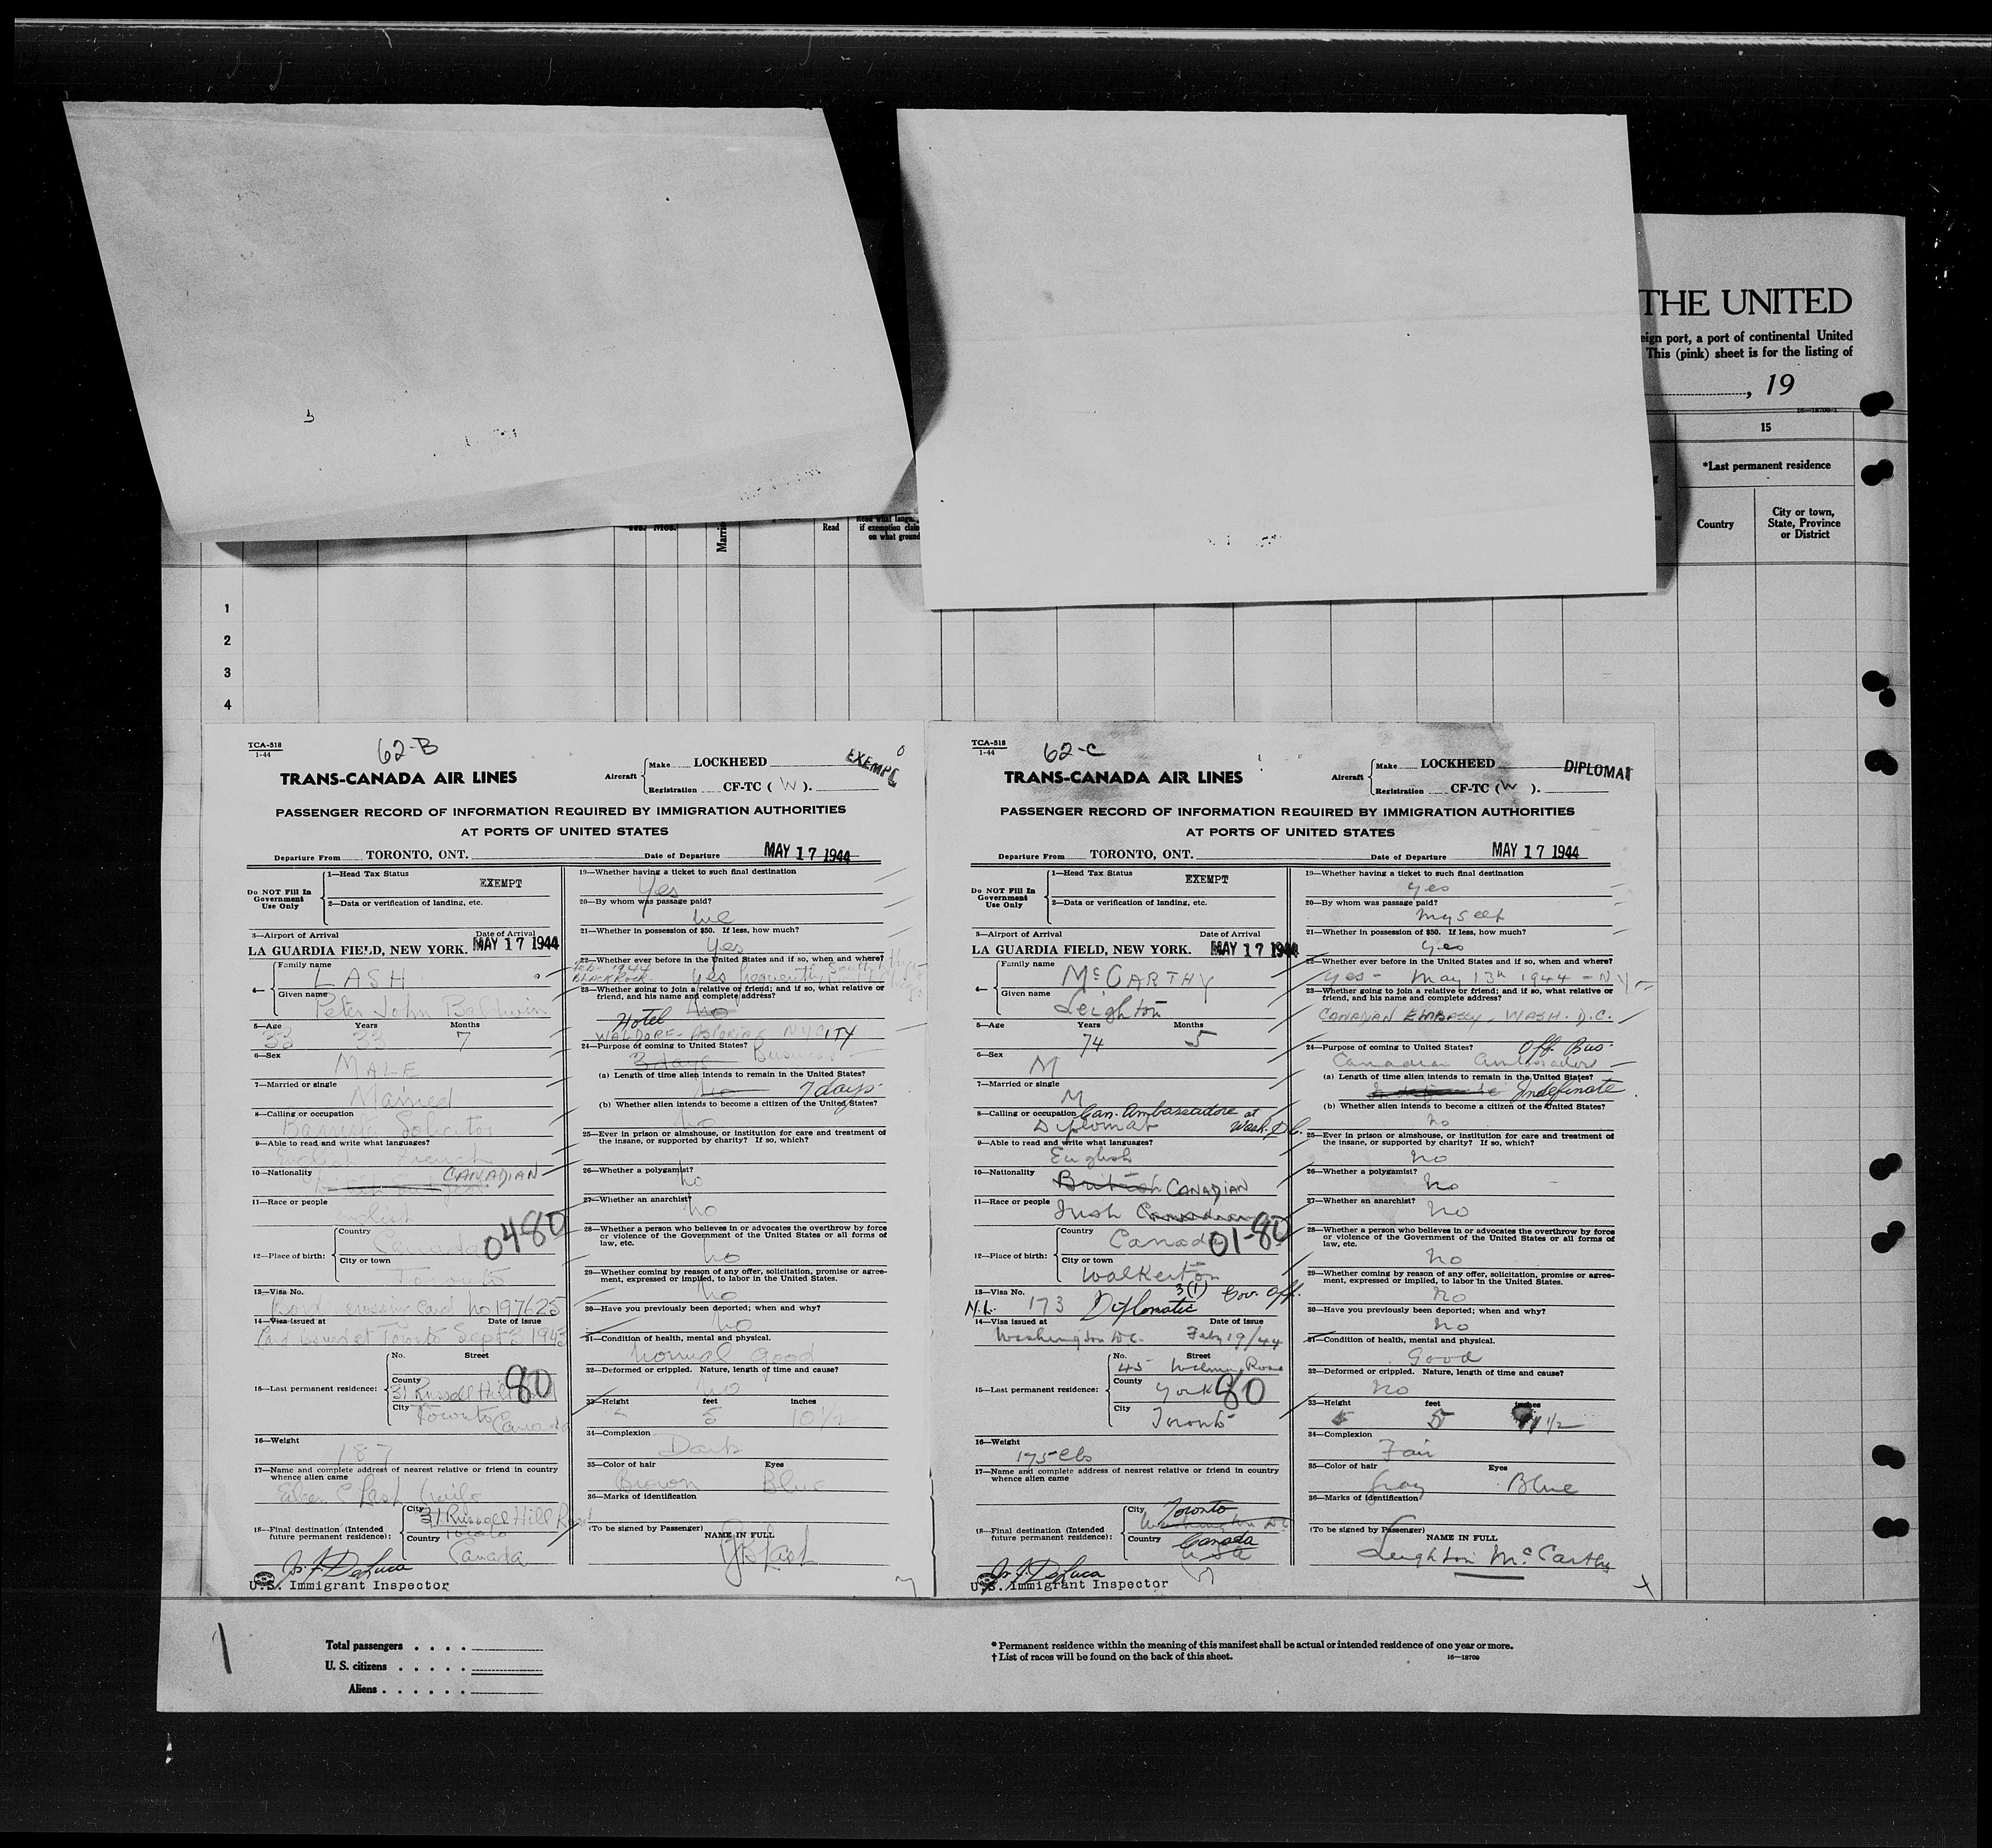 THE UNITED
eign port, a port of continental United
This (pink) sheet is for the listing of
, 19
16—18709-1
15
*Last permanent residence
Country
City or town,
State, Province
or District
Yrs. Mos.
Read
Read what langu
if exemption clai
on what ground
1
2
3
4
TCA-518
1-44
62-B
TRANS-CANADA AIR LINES
Aircraft
Make LOCKHEED
Registration CF-TC ( W ).
EXEMPT
PASSENGER RECORD OF INFORMATION REQUIRED BY IMMIGRATION AUTHORITIES
AT PORTS OF UNITED STATES
Departure From TORONTO, ONT. Date of Departure MAY 17 1944
Do NOT Fill In
Government
Use Only
1—Head Tax Status
EXEMPT
2—Data or verification of landing, etc.
3—Airport of Arrival Date of Arrival
LA GUARDIA FIELD, NEW YORK. MAY 17 1944
4— Family name
LASH
Given name
Peter John Baldwin
5—Age Years Months
33 33 7
6—Sex
MALE
7—Married or single
Married
8—Calling or occupation
Barrister Solicitor
9—Able to read and write what languages?
English French
10—Nationality CANADIAN
11—Race or people
English
12—Place of birth:
Country
Canada 0480
City or town
Toronto
13—Visa No.
Bord. crossing card no 197625
14—Visa issued at Date of issue
Card issued at Toronto Sept 3 1943
15—Last permanent residence:
No. Street
County
31 Russell Hill 80
City
Toronto Canada
16—Weight
187
17—Name and complete address of nearest relative or friend in country
whence alien came
Eileen C Lash (wife
18—Final destination (Intended
future permanent residence):
City
31 Russell Hill Road
Toronto
Country
Canada
U.S. Immigrant Inspector
19—Whether having a ticket to such final destination
Yes
20—By whom was passage paid?
me
21—Whether in possession of $50. If less, how much?
Yes
22—Whether ever before in the United States and if so, when and where?
Feb- 1944
BLACK ROCK yes frequently
23—Whether going to join a relative or friend; and if so, what relative or
friend, and his name and complete address?
no
Hotel
WALDORF-ASTORIA NY CITY
24—Purpose of coming to United States?
3 days Business
(a) Length of time alien intends to remain in the United States?
no 7 days.
(b) Whether alien intends to become a citizen of the United States?
no
25—Ever in prison or almshouse, or institution for care and treatment of
the insane, or supported by charity? If so, which?
26—Whether a polygamist?
no
27—Whether an anarchist?
no
28—Whether a person who believes in or advocates the overthrow by force
or violence of the Government of the United States or all forms of
law, etc.
no
29—Whether coming by reason of any offer, solicitation, promise or agree-
ment, expressed or implied, to labor in the United States.
no
30—Have you previously been deported; when and why?
no
31—Condition of health, mental and physical.
normal good
32—Deformed or crippled. Nature, length of time and cause?
no
33—Height feet inches
5 10 1/2
34—Complexion
Dark
35—Color of hair Eyes
Brown Blue
36—Marks of identification
(To be signed by Passenger) NAME IN FULL
PJB Lash
TCA-518
1-44
62-C
TRANS-CANADA AIR LINES
Aircraft
Make LOCKHEED
Registration CF-TC ( W ).
DIPLOMAT
PASSENGER RECORD OF INFORMATION REQUIRED BY IMMIGRATION AUTHORITIES
AT PORTS OF UNITED STATES
Departure From TORONTO, ONT. Date of Departure MAY 17 1944
Do NOT Fill In
Government
Use Only
1—Head Tax Status
EXEMPT
2—Data or verification of landing, etc.
3—Airport of Arrival Date of Arrival
LA GUARDIA FIELD, NEW YORK. MAY 17 1944
4— Family name
McCARTHY
Given name
Leighton
5—Age Years Months
74 5
6—Sex
M
7—Married or single
M
8—Calling or occupation Can. Ambassadore at
Diplomat Wash. D.C.
9—Able to read and write what languages?
English
10—Nationality
British CANADIAN
11—Race or people Irish Canadian
12—Place of birth:
Country
Canada 01-80
City or town
Walkerton
13—Visa No. 3(1) Gov. Off.
N.L. 173 Diplomatic
14—Visa issued at Date of issue
Washington D.C. Feby 19/44
15—Last permanent residence:
No. Street
45 Road
County
York 80
City
Toronto
16—Weight
175 lbs
17—Name and complete address of nearest relative or friend in country
whence alien came
18—Final destination (Intended
future permanent residence):
City Toronto
Washington DC
Country Canada
USA
U.S. Immigrant Inspector
19—Whether having a ticket to such final destination
yes
20—By whom was passage paid?
myself
21—Whether in possession of $50. If less, how much?
Yes
22—Whether ever before in the United States and if so, when and where?
yes - May 13th 1944 - N.Y.
23—Whether going to join a relative or friend; and if so, what relative or
friend, and his name and complete address?
CANADIAN EMBASSY, WASH. D.C.
24—Purpose of coming to United States? Off. Bus.
Canadian Ambassador
(a) Length of time alien intends to remain in the United States?
Indefinate
(b) Whether alien intends to become a citizen of the United States?
no
25—Ever in prison or almshouse, or institution for care and treatment of
the insane, or supported by charity? If so, which?
no
26—Whether a polygamist?
no
27—Whether an anarchist?
no
28—Whether a person who believes in or advocates the overthrow by force
or violence of the Government of the United States or all forms of
law, etc.
no
29—Whether coming by reason of any offer, solicitation, promise or agree-
ment, expressed or implied, to labor in the United States.
no
30—Have you previously been deported; when and why?
no
31—Condition of health, mental and physical.
Good
32—Deformed or crippled. Nature, length of time and cause?
no
33—Height feet inches
5 11 1/2
34—Complexion
Fair
35—Color of hair Eyes
Gray Blue
36—Marks of identification
(To be signed by Passenger) NAME IN FULL
Leighton McCarthy
Total passengers . . . .
U. S. citizens . . . . .
Aliens . . . . . .
* Permanent residence within the meaning of this manifest shall be actual or intended residence of one year or more.
† List of races will be found on the back of this sheet.
16—18709